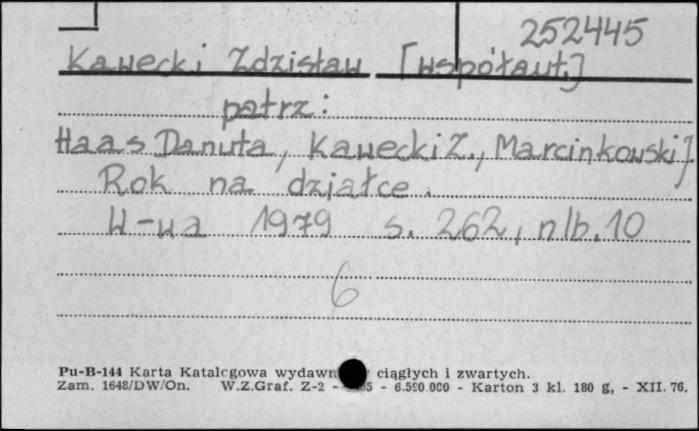 252445
Kawecki Zdzisław [współaut.]
patrz:
Haas Danuta, Kawecki Z., Marcinkowski J.
Rok na działce.
W-wa 1979 s. 262, nlb. 10
6
Pu-B-144 Karta Katalogowa ciągłych i zwartych.
Zam. 1648/DW/On. W.Z.Graf. Z-2 - - 6.590.000 - Karton 3 kl. 180 g, - XII. 76.